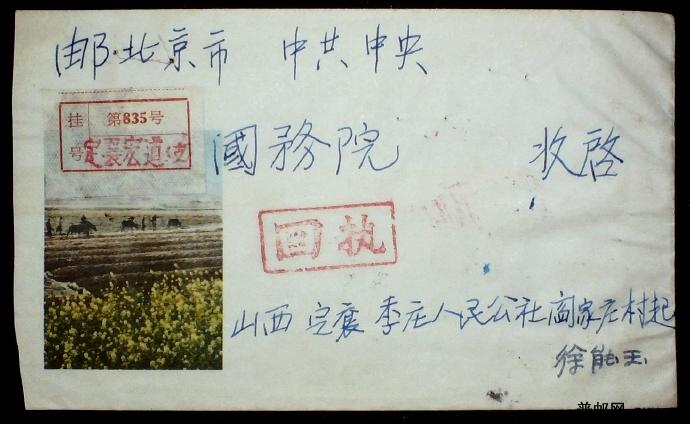 邮 北京市 中共中央
挂号 第835号
定襄宏道(支
國務院 收啓
回执
山西 定襄 季庄人民公社 阎家庄村起
徐能玉
普邮网